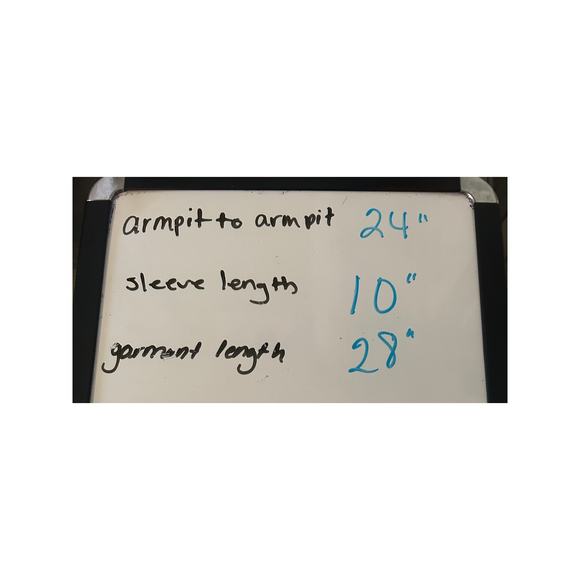 armpit to armpit 24"
sleeve length 10"
garment length 28"